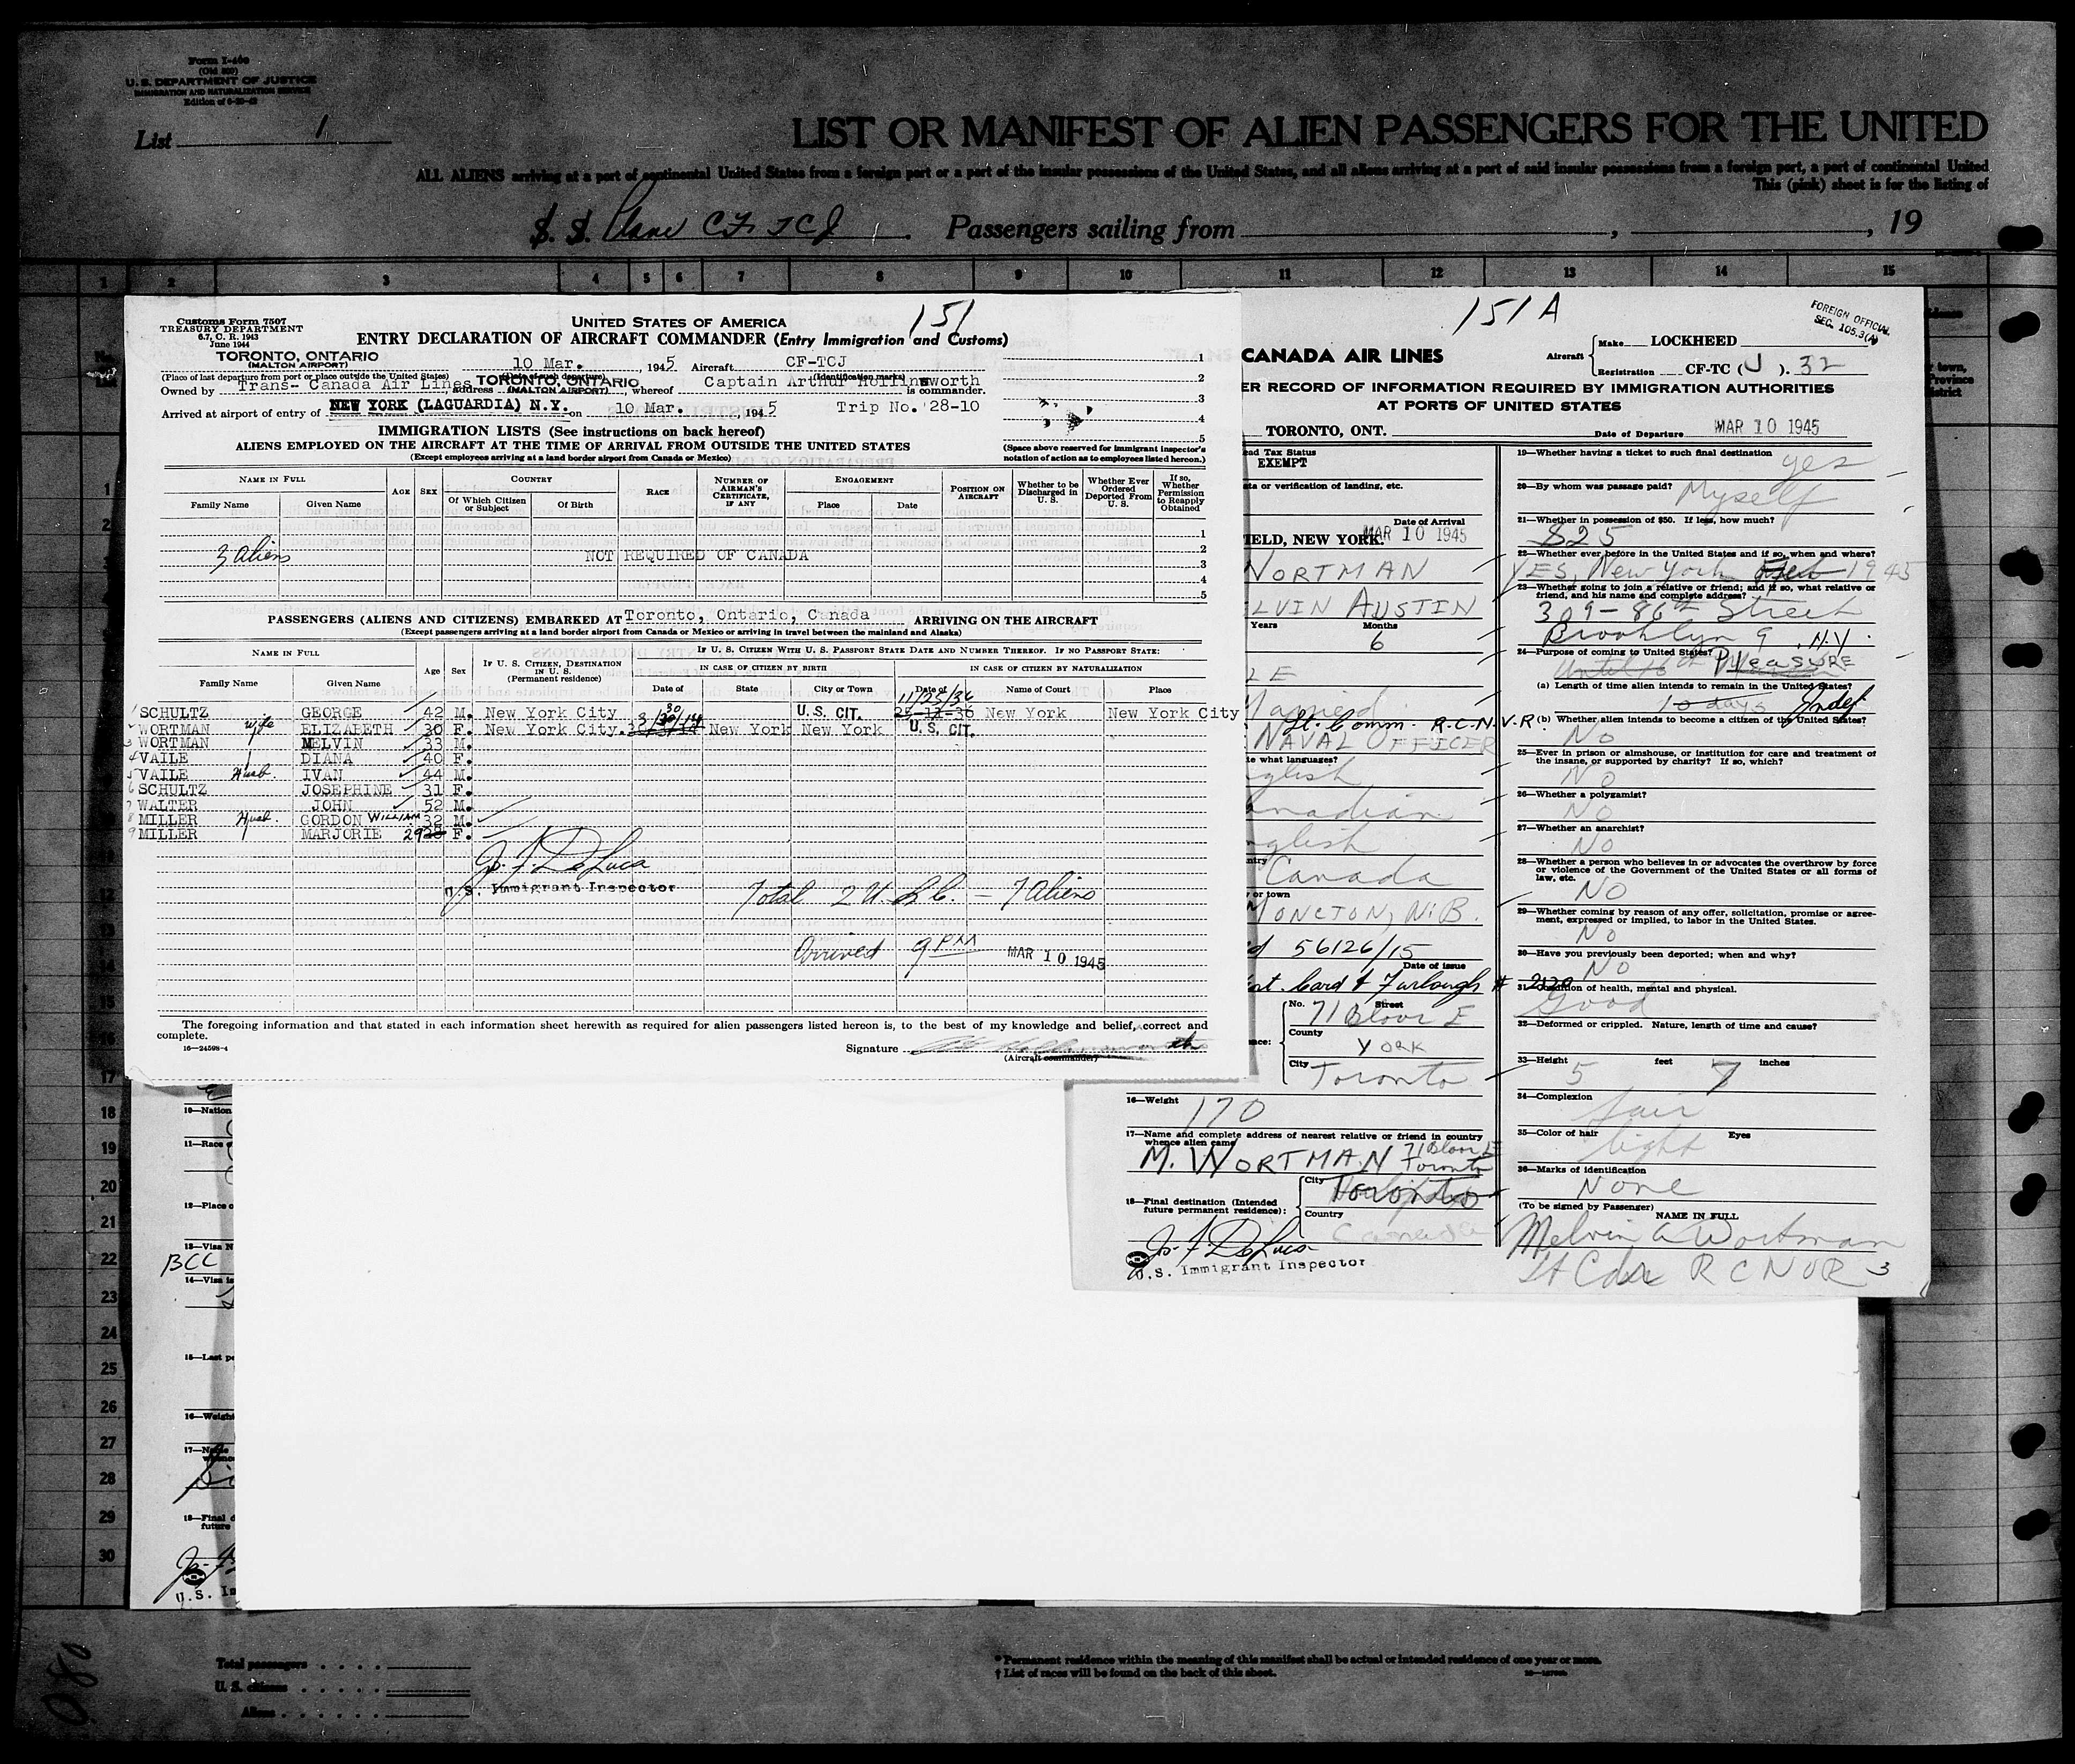 Form I-466
(Old 500)
U. S. DEPARTMENT OF JUSTICE
IMMIGRATION AND NATURALIZATION SERVICE
List 1
LIST OR MANIFEST OF ALIEN PASSENGERS FOR THE UNITED
ALL ALIENS arriving at a port of continental United States from a foreign port or a port of the insular possessions of the United States, and all aliens arriving at a port of said insular possessions from a foreign port, a port of continental United
This (pink) sheet is for the listing of
S. S. Plane CF TCJ Passengers sailing from , , 19
1 2 3 4 5 6 7 8 9 10 11 12 13 14 15
Customs Form 7507
TREASURY DEPARTMENT
6.7, C. R. 1943
June 1944
UNITED STATES OF AMERICA
151
ENTRY DECLARATION OF AIRCRAFT COMMANDER (Entry Immigration and Customs)
TORONTO, ONTARIO
(MALTON AIRPORT)
10 Mar. , 1945 Aircraft CF-TCJ
(Place of last departure from port or place outside the United States) (Date of such departure) (Identification marks)
Owned by Trans- Canada Air Lines, address TORONTO, ONTARIO (MALTON AIRPORT), whereof Captain Arthur Hollinsworth is commander.
Arrived at airport of entry of NEW YORK (LAGUARDIA) N.Y. on 10 Mar. , 1945 Trip No. 28-10
1
2
3
4
5
IMMIGRATION LISTS (See instructions on back hereof)
ALIENS EMPLOYED ON THE AIRCRAFT AT THE TIME OF ARRIVAL FROM OUTSIDE THE UNITED STATES
(Except employees arriving at a land border airport from Canada or Mexico)
(Space above reserved for immigrant inspector's notation of action as to employees listed hereon.)
NAME IN FULL
Family Name Given Name
AGE SEX
COUNTRY
Of Which Citizen or Subject Of Birth
RACE
NUMBER OF AIRMAN'S CERTIFICATE, IF ANY
ENGAGEMENT
Place Date
POSITION ON AIRCRAFT
Whether to be Discharged in U. S.
Whether Ever Ordered Deported From U. S.
If so, Whether Permission to Reapply Obtained
3 aliens NOT REQUIRED OF CANADA
PASSENGERS (ALIENS AND CITIZENS) EMBARKED AT Toronto, Ontario, Canada ARRIVING ON THE AIRCRAFT
(Except passengers arriving at a land border airport from Canada or Mexico or arriving in travel between the mainland and Alaska)
NAME IN FULL
Family Name Given Name
Age Sex
IF U. S. CITIZEN, DESTINATION IN U. S.
(Permanent residence)
IF U. S. CITIZEN WITH U. S. PASSPORT STATE DATE AND NUMBER THEREOF. IF NO PASSPORT STATE:
IN CASE OF CITIZEN BY BIRTH IN CASE OF CITIZEN BY NATURALIZATION
Date of State City or Town Date of Name of Court Place
11/25/36
1 SCHULTZ GEORGE 42 M. New York City U. S. CIT. 25-12-36 New York New York City
2 WORTMAN wife ELIZABETH 30 F. New York City. 3/30/14 New York New York U. S. CIT.
3 WORTMAN MELVIN 33 M.
4 VAILE DIANA 40 F.
5 VAILE Husb. IVAN 44 M.
6 SCHULTZ JOSEPHINE 31 F.
7 WALTER JOHN 52 M.
8 MILLER Husb. GORDON WILLIAM 32 M.
9 MILLER MARJORIE 29 F.
Jo. F. DeLuca
U.S. Immigrant Inspector
Total 2 U.S.C. = 7 Aliens
Arrived 9 PM MAR 10 1945
The foregoing information and that stated in each information sheet herewith as required for alien passengers listed hereon is, to the best of my knowledge and belief, correct and
complete.
16—24598-4
Signature
(Aircraft commander)
151 A
FOREIGN OFFICIAL
SEC. 105.3(A)
CANADA AIR LINES
Aircraft Make LOCKHEED
Registration CF-TC (J). 32
ER RECORD OF INFORMATION REQUIRED BY IMMIGRATION AUTHORITIES
AT PORTS OF UNITED STATES
TORONTO, ONT. Date of Departure MAR 10 1945
ead Tax Status
EXEMPT
ta or verification of landing, etc.
Date of Arrival
IELD, NEW YORK. MAR 10 1945
WORTMAN
LVIN AUSTIN
Years Months
6
LE
Married
Lt. Comm. R.C.N.V.R
NAVAL OFFICER
te what languages?
glish
anadian
nglish
ntry Canada
or town
MONCTON, N.B.
d 56126/15
Date of issue
at. Card & Furlough # 2020
No. Street
71 Bloor E
County
York
City
Toronto
16—Weight
170
17—Name and complete address of nearest relative or friend in country
whence alien came
M. WORTMAN 71 Bloor E
Toronto
18—Final destination (Intended
future permanent residence):
City Toronto
Country Canada
Jo. F. DeLuca
U.S. Immigrant Inspector
19—Whether having a ticket to such final destination
yes
20—By whom was passage paid?
Myself
21—Whether in possession of $50. If less, how much?
$25
22—Whether ever before in the United States and if so, when and where?
YES, New York 1945
23—Whether going to join a relative or friend; and if so, what relative or
friend, and his name and complete address?
309-86th Street
Brooklyn 9 N.Y.
24—Purpose of coming to United States?
PLEASURE
(a) Length of time alien intends to remain in the United States?
10 days Indef
(b) Whether alien intends to become a citizen of the United States?
No
25—Ever in prison or almshouse, or institution for care and treatment of
the insane, or supported by charity? If so, which?
No
26—Whether a polygamist?
No
27—Whether an anarchist?
No
28—Whether a person who believes in or advocates the overthrow by force
or violence of the Government of the United States or all forms of
law, etc.
NO
29—Whether coming by reason of any offer, solicitation, promise or agree-
ment, expressed or implied, to labor in the United States.
No
30—Have you previously been deported; when and why?
No
31—Condition of health, mental and physical.
Good
32—Deformed or crippled. Nature, length of time and cause?
33—Height feet inches
5 7
34—Complexion
fair
35—Color of hair Eyes
light
36—Marks of identification
None
(To be signed by Passenger)
NAME IN FULL
Melvin A Wortman
Lt Cdr RCNVR 3
10—Nation
11—Race
12—Place o
13—Visa N
BCC
14—Visa is
15—Last pe
16—Weight
17—Name
18—Final d
future
U.S. In
17
18
19
20
21
22
23
24
25
26
27
28
29
30
Total passengers
U. S. citizens
Aliens
* Permanent residence within the meaning of this manifest shall be actual or intended residence of one year or more.
† List of races will be found on the back of this sheet.
080